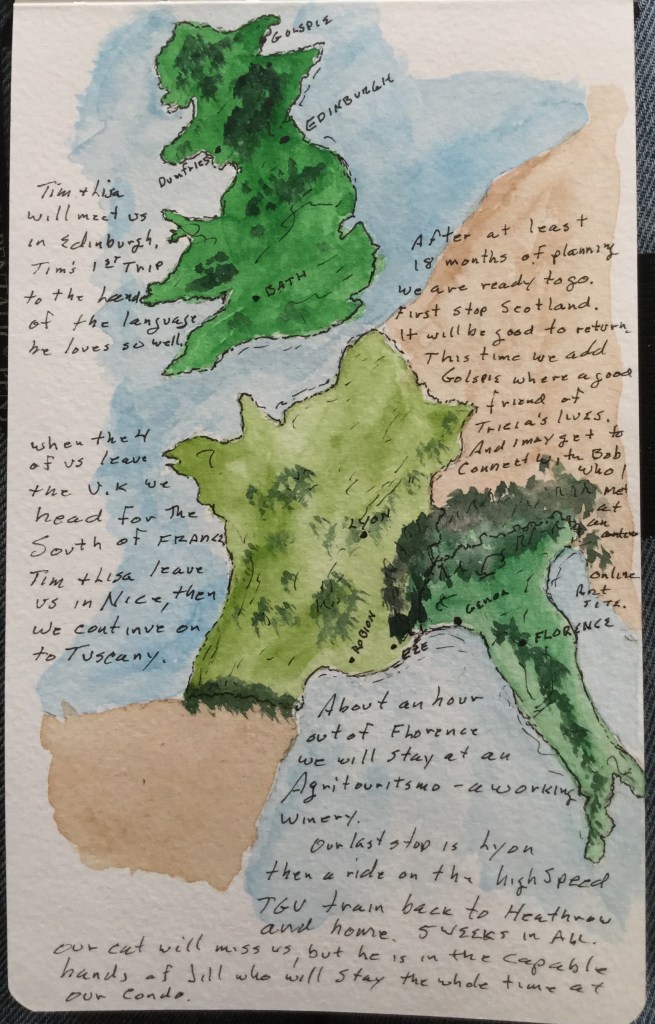 GOLSPIE
EDINBURGH
Dumfries
BATH
Tim + Lisa
will meet us
in Edinburgh,
Tim's 1st Trip
to the hands
of the language
he loves so well.
After at least
18 months of planning
we are ready to go.
First stop Scotland.
It will be good to return
This time we add
Golspie where a good
friend of
Tricia's lives.
And I may get to
Connect with Bob
who I
met
at
an
online
Art
SITE.
when the 4
of us leave
the U.K we
head for The
South of FRANCE
Tim + Lisa leave
us in Nice, then
we continue on
to Tuscany.
LYON
ROBION
EZE
GENOA
FLORENCE
About an hour
out of Florence
we will stay at an
Agritouritsmo - a working
winery.
Our last stop is Lyon
then a ride on the high Speed
TGV train back to Heathrow
and home. 5 WEEKS in ALL.
our cat will miss us, but he is in the capable
hands of Jill who will stay the whole time at
our Condo.